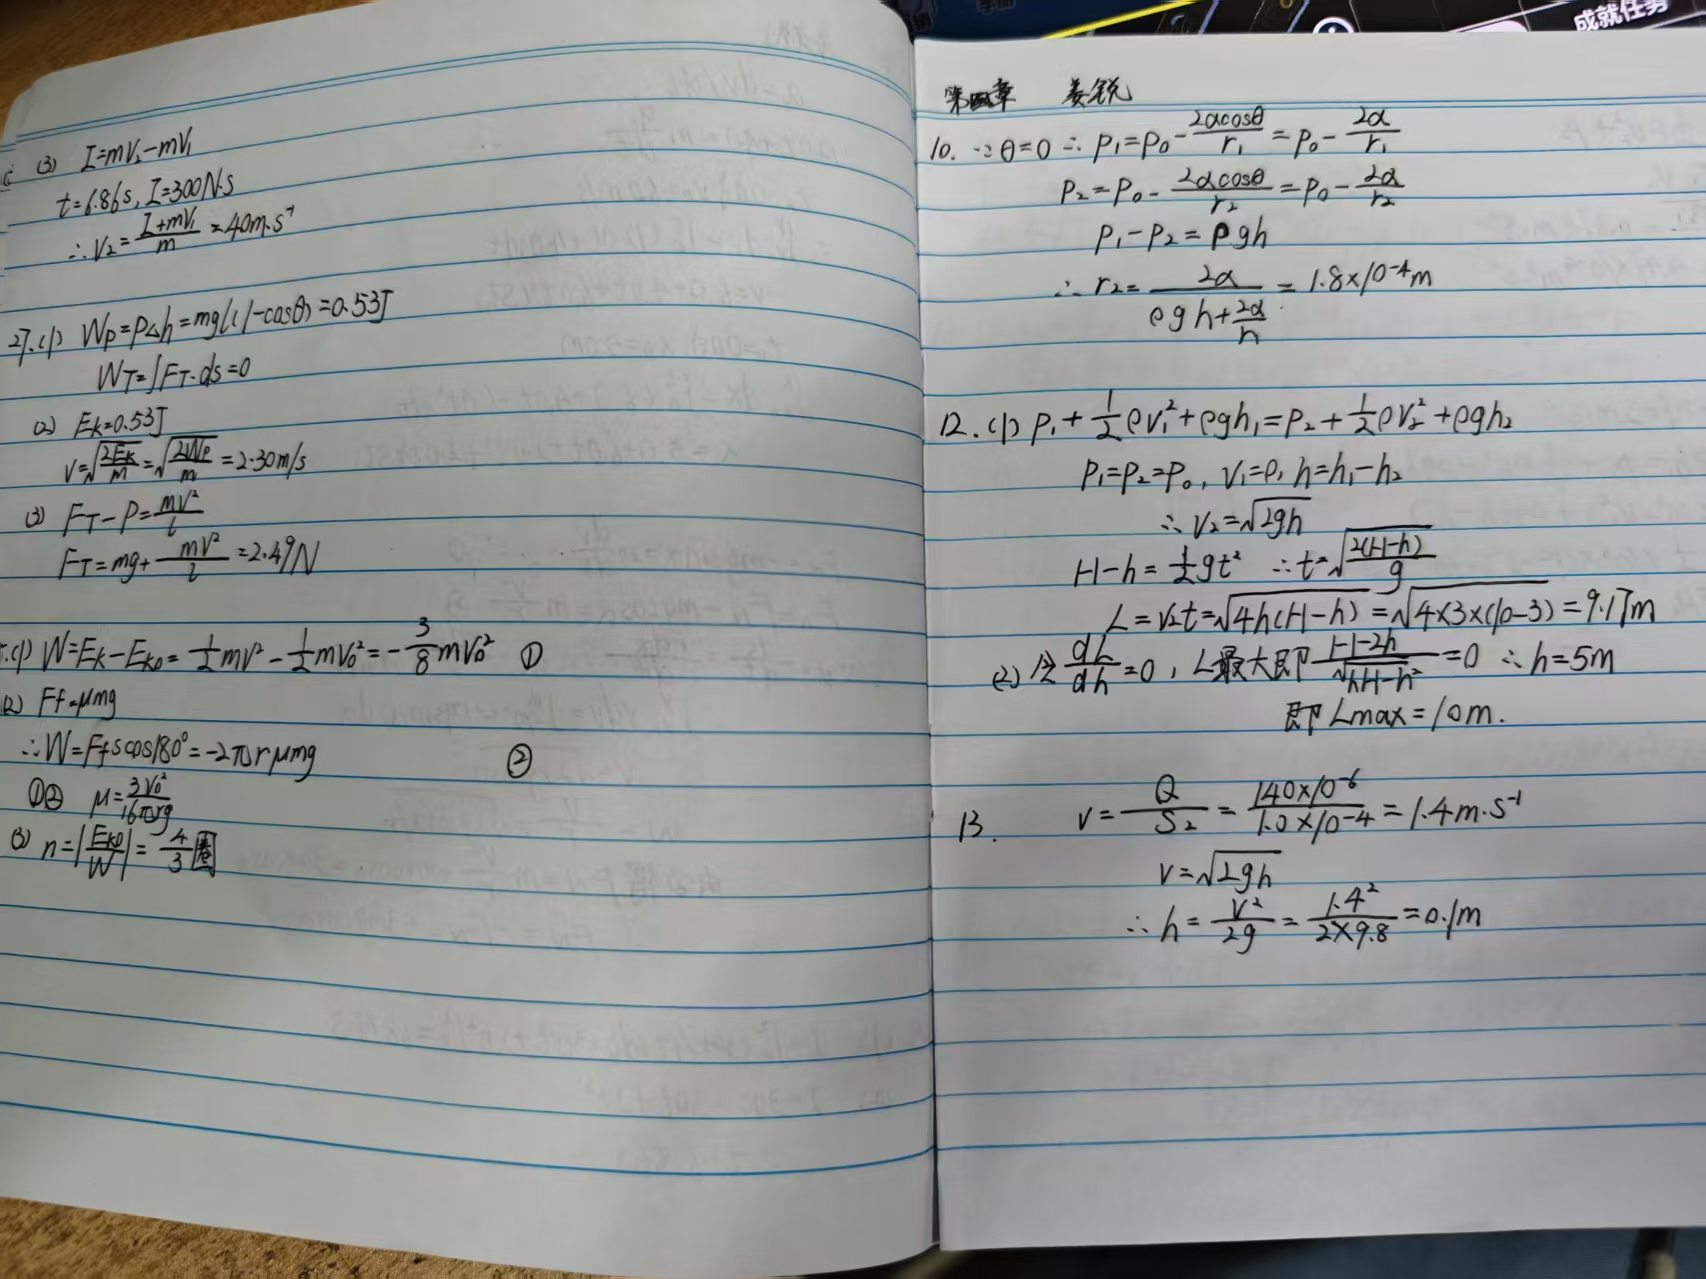 (3) I=mV₂-mV₁
t=6.86s, I=300N·s
∴V₂=\frac{I+mV₁}{m}=40m·s⁻¹
27.(1) Wp=PΔh=mgl(1-cosθ)=0.53J
W_T=∫F_T·ds=0
(2) Ek=0.53J
V=\sqrt{\frac{2Ek}{m}}=\sqrt{\frac{2Wp}{m}}=2.30m/s
(3) F_T-P=\frac{mV²}{l}
F_T=mg+\frac{mV²}{l}=2.49N
(1) W=Ek-Ek₀=\frac{1}{2}mV²-\frac{1}{2}mV₀²=-\frac{3}{8}mV₀² ①
(2) Ff=μmg
∴W=Ffscos180°=-2πrμmg ②
①② μ=\frac{3V₀²}{16πrg}
(3) n=|\frac{Ek₀}{W}|=\frac{4}{3}圈
第四章 姜锐
10. ∵θ=0 ∴P₁=P₀-\frac{2αcosθ}{r₁}=P₀-\frac{2α}{r₁}
P₂=P₀-\frac{2αcosθ}{r₂}=P₀-\frac{2α}{r₂}
P₁-P₂=ρgh
∴r₂=\frac{2α}{ρgh+\frac{2α}{r₁}}=1.8×10⁻⁴m
12.(1) P₁+\frac{1}{2}ρV₁²+ρgh₁=P₂+\frac{1}{2}ρV₂²+ρgh₂
P₁=P₂=P₀, V₁=0, h=h₁-h₂
∴V₂=\sqrt{2gh}
H-h=\frac{1}{2}gt² ∴t=\sqrt{\frac{2(H-h)}{g}}
L=V₂t=\sqrt{4h(H-h)}=\sqrt{4×3×(10-3)}=9.17m
(2) 令\frac{dL}{dh}=0, L最大即\frac{H-2h}{\sqrt{hH-h²}}=0 ∴h=5m
即Lmax=10m.
13. V=\frac{Q}{S₂}=\frac{140×10⁻⁶}{1.0×10⁻⁴}=1.4m·s⁻¹
V=\sqrt{2gh}
∴h=\frac{V²}{2g}=\frac{1.4²}{2×9.8}=0.1m
成就任务